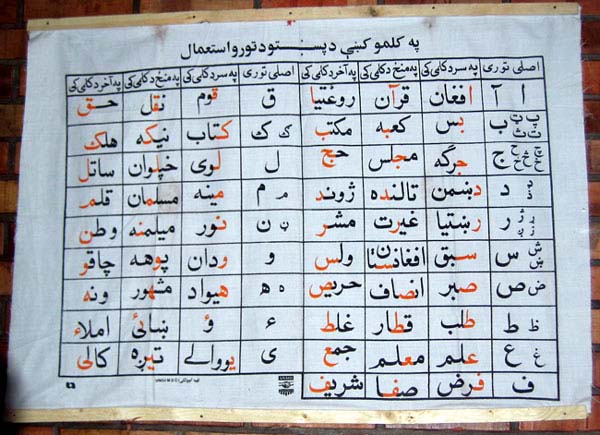 په کلمو کښې د پښتو د تورو استعمال
اصلي توري په سر د کلمې کې په منځ د کلمې کې په آخر د کلمې کې اصلي توري په سر د کلمې کې په منځ د کلمې کې په آخر د کلمې کې
ا آ افغان قرآن روغتيا ق قوم نقل حق
ب پ ت ټ ث ن بس کعبه مکتب ک ګ کتاب نيکه هلک
ج چ ح خ څ ځ جرگه مجلس حج ل لوی خپلوان ساتل
د ډ ذ دښمن تالنده ژوند م مينه مسلمان قلم
ر ړ ز ژ رښتيا غيرت مشر ن ڼ نور ميلمنه وطن
س ش ښ سبق افغانستان ولس و ودان پوهه چاقو
ص ض صبر انصاف حريص ه هيواد مشهور ونه
ط ظ طلب قطار غلط ء ؤ ښائی املاء
ع غ علم معلم جمع ی يووالی تيږه کالی
ف فرض صفا شريف